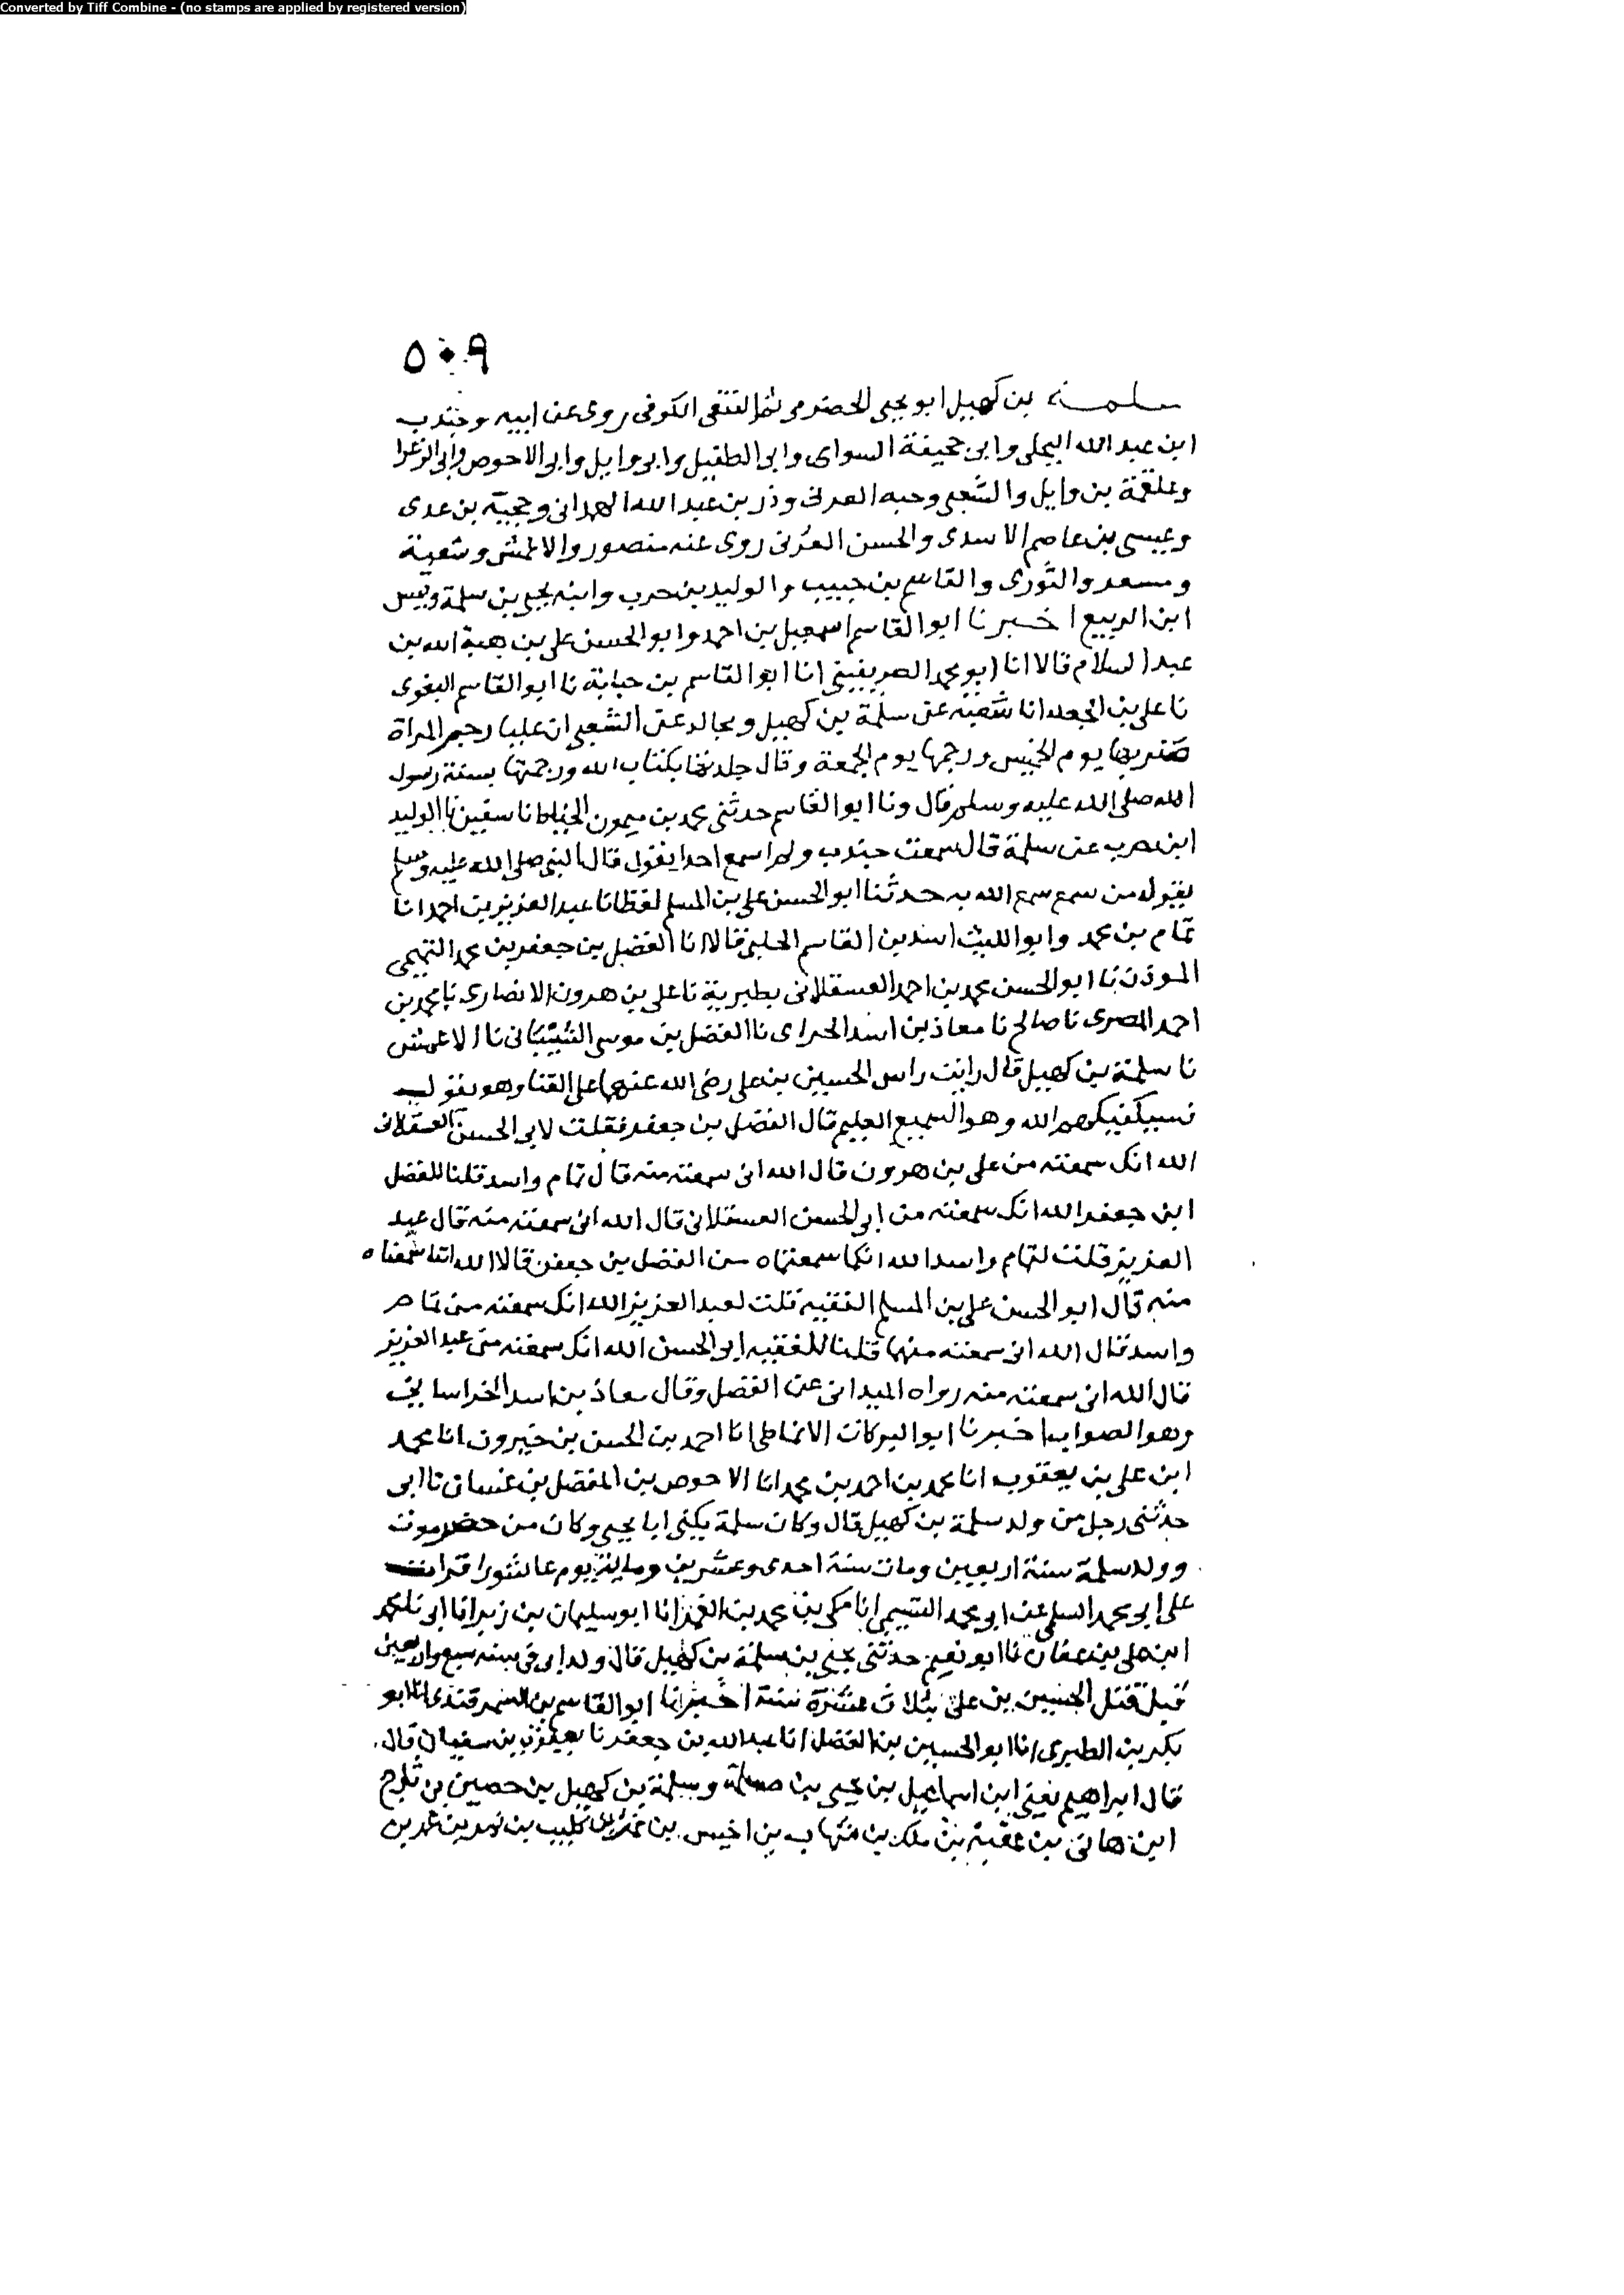 Converted by Tiff Combine - (no stamps are applied by registered version)
٥٠٩
سلمة بن كهيل ابو يحيى الحضرمى ثم التنعى الكوفى روى عن ابيه وجندب
ابن عبد الله البجلى وابى جحيفة السواى وابى الطفيل وابى وايل وابى الاحوص وابى الزعرا
وعلقمة بن وايل والشعبى وحبه العرنى وذر بن عبد الله الهمدانى وحجية بن عدى
وعيسى بن عاصم الاسدى والحسن العرنى روى عنه منصور والاعمش وشعبة
ومسعر والثورى والقاسم بن حبيب والوليد بن حرب وابنه يحيى بن سلمة وقيس
ابن الربيع اخبرنا ابو القاسم اسمعيل بن احمد وابو الحسن على بن هبة الله بن
عبد السلام قالا انا ابو محمد الصريفينى انا ابو القاسم بن حبابة نا ابو القاسم البغوى
نا على بن الجعد انا شعبة عن سلمة بن كهيل ومجالد عن الشعبى ان عليا رجم المراة
ضربها يوم الخميس ورجمها يوم الجمعة وقال جلدتها بكتاب الله ورجمتها بسنة رسول
الله صلى الله عليه وسلم قال ونا ابو القاسم حدثنى محمد بن ميمون الخياط نا سفين نا الوليد
ابن حرب عن سلمة قال سمعت جندب ولم اسمع احدا يقول قال النبى صلى الله عليه وسلم
يقول من سمع سمع الله به حدثنا ابو الحسن على بن المسلم لفظا نا عبد العزيز بن احمد انا
تمام بن محمد وابو الليث اسد بن القاسم الحلبى قالا انا الفضل بن جعفر بن محمد التميمى
الموذن نا ابو الحسن محمد بن احمد العسقلانى بطبرية نا على بن هرون الانصارى نا محمد بن
احمد المصرى نا صالح نا معاذ بن اسد الحرانى نا الفضل بن موسى الشيبانى نا الاعمش
نا سلمة بن كهيل قال رايت راس الحسين بن على رضى الله عنهما على القنا وهو يقول
فسيكفيكهم الله وهو السميع العليم قال الفضل بن جعفر فقلت لابى الحسن العسقلانى
الله انك سمعته من على بن هرون قال الله انى سمعته منه قال تمام واسد قلنا للفضل
ابن جعفر الله انك سمعته من ابى الحسن العسقلانى قال الله انى سمعته منه قال عبد
العزيز قلت لتمام واسد الله انكما سمعتماه من الفضل بن جعفر قالا الله اننا سمعناه
منه قال ابو الحسن على بن المسلم الفقيه قلت لعبد العزيز الله انك سمعته من تمام
واسد قال الله انى سمعته منهما قلنا للفقيه ابى الحسن الله انك سمعته من عبد العزيز
قال الله انى سمعته منه رواه الميدانى عن الفضل وقال معاذ بن اسد الخراسانى
وهو الصواب اخبرنا ابو البركات الانماطى انا احمد بن الحسن بن خيرون انا محمد
ابن على بن يعقوب انا محمد بن احمد بن محمد انا الاحوص بن المفضل بن غسان نا ابى
حدثنى رجل من ولد سلمة بن كهيل قال وكان سلمة يكنى ابا يحيى وكان من حضرموت
وولد سلمة سنة اربعين ومات سنة احدى وعشرين وماية يوم عاشورا قرات
على ابى محمد السلمى عن ابى محمد التميمى انا مكى بن محمد بن الغمر انا ابو سليمان بن زبر انا ابى نا محمد
ابن على بن عفان نا ابو نعيم حدثنى يحيى بن سلمة بن كهيل قال ولد ابى فى سنة سبع واربعين
قبل قتل الحسين بن على بثلاث عشرة سنة اخبرنا ابو القاسم بن السمرقندى انا ابو
بكر بن الطبرى انا ابو الحسين بن الفضل انا عبد الله بن جعفر نا يعقوب بن سفيان قال
قال ابراهيم يعنى ابن اسماعيل بن يحيى بن سلمة وسلمة بن كهيل بن حصين بن تمارح
ابن هانى بن عقبة بن ملك بن شهاب بن اخيس بن كليب بن بن عمرو بن